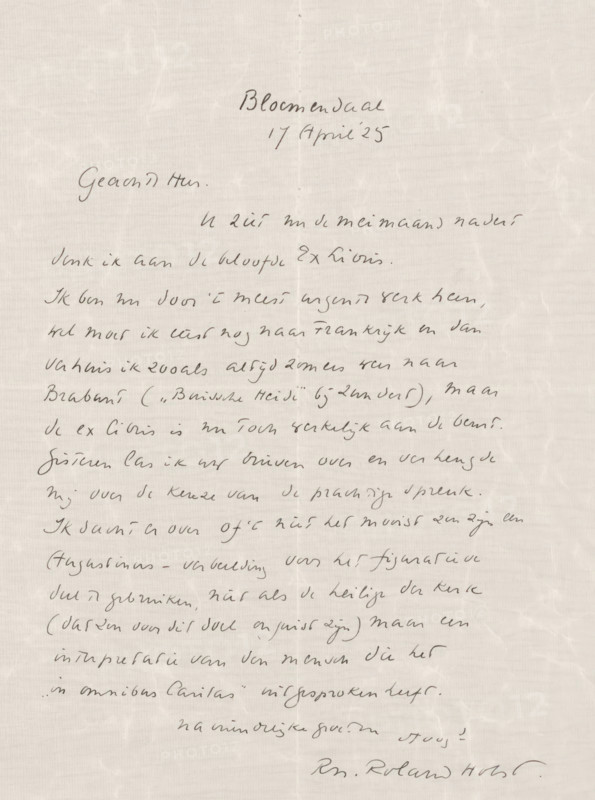 Bloemendaal
17 April '25
Geachte Heer.
U ziet nu de meimaand nadert
denk ik aan de beloofde Ex Libris.
Ik ben nu door 't meest urgente werk heen,
wel moet ik eerst nog naar Frankrijk en dan
verhuis ik zooals altijd zomers weer naar
Brabant („Buissche Heide" bij Zundert), maar
de ex libris is nu toch werkelijk aan de beurt.
Gisteren las ik uw brieven over en verheugde
mij over de keuze van de prachtige spreuk.
Ik dacht er over of 't niet het mooist zou zijn een
Augustinus-verbeelding voor het figuratieve
deel te gebruiken, niet als de heilige der kerk
(dat zou voor dit doel onjuist zijn) maar een
interpretatie van den mensch die het
„in omnibus Caritas" uitgesproken heeft.
na vriendelijke groeten
Rn. Roland Holst.